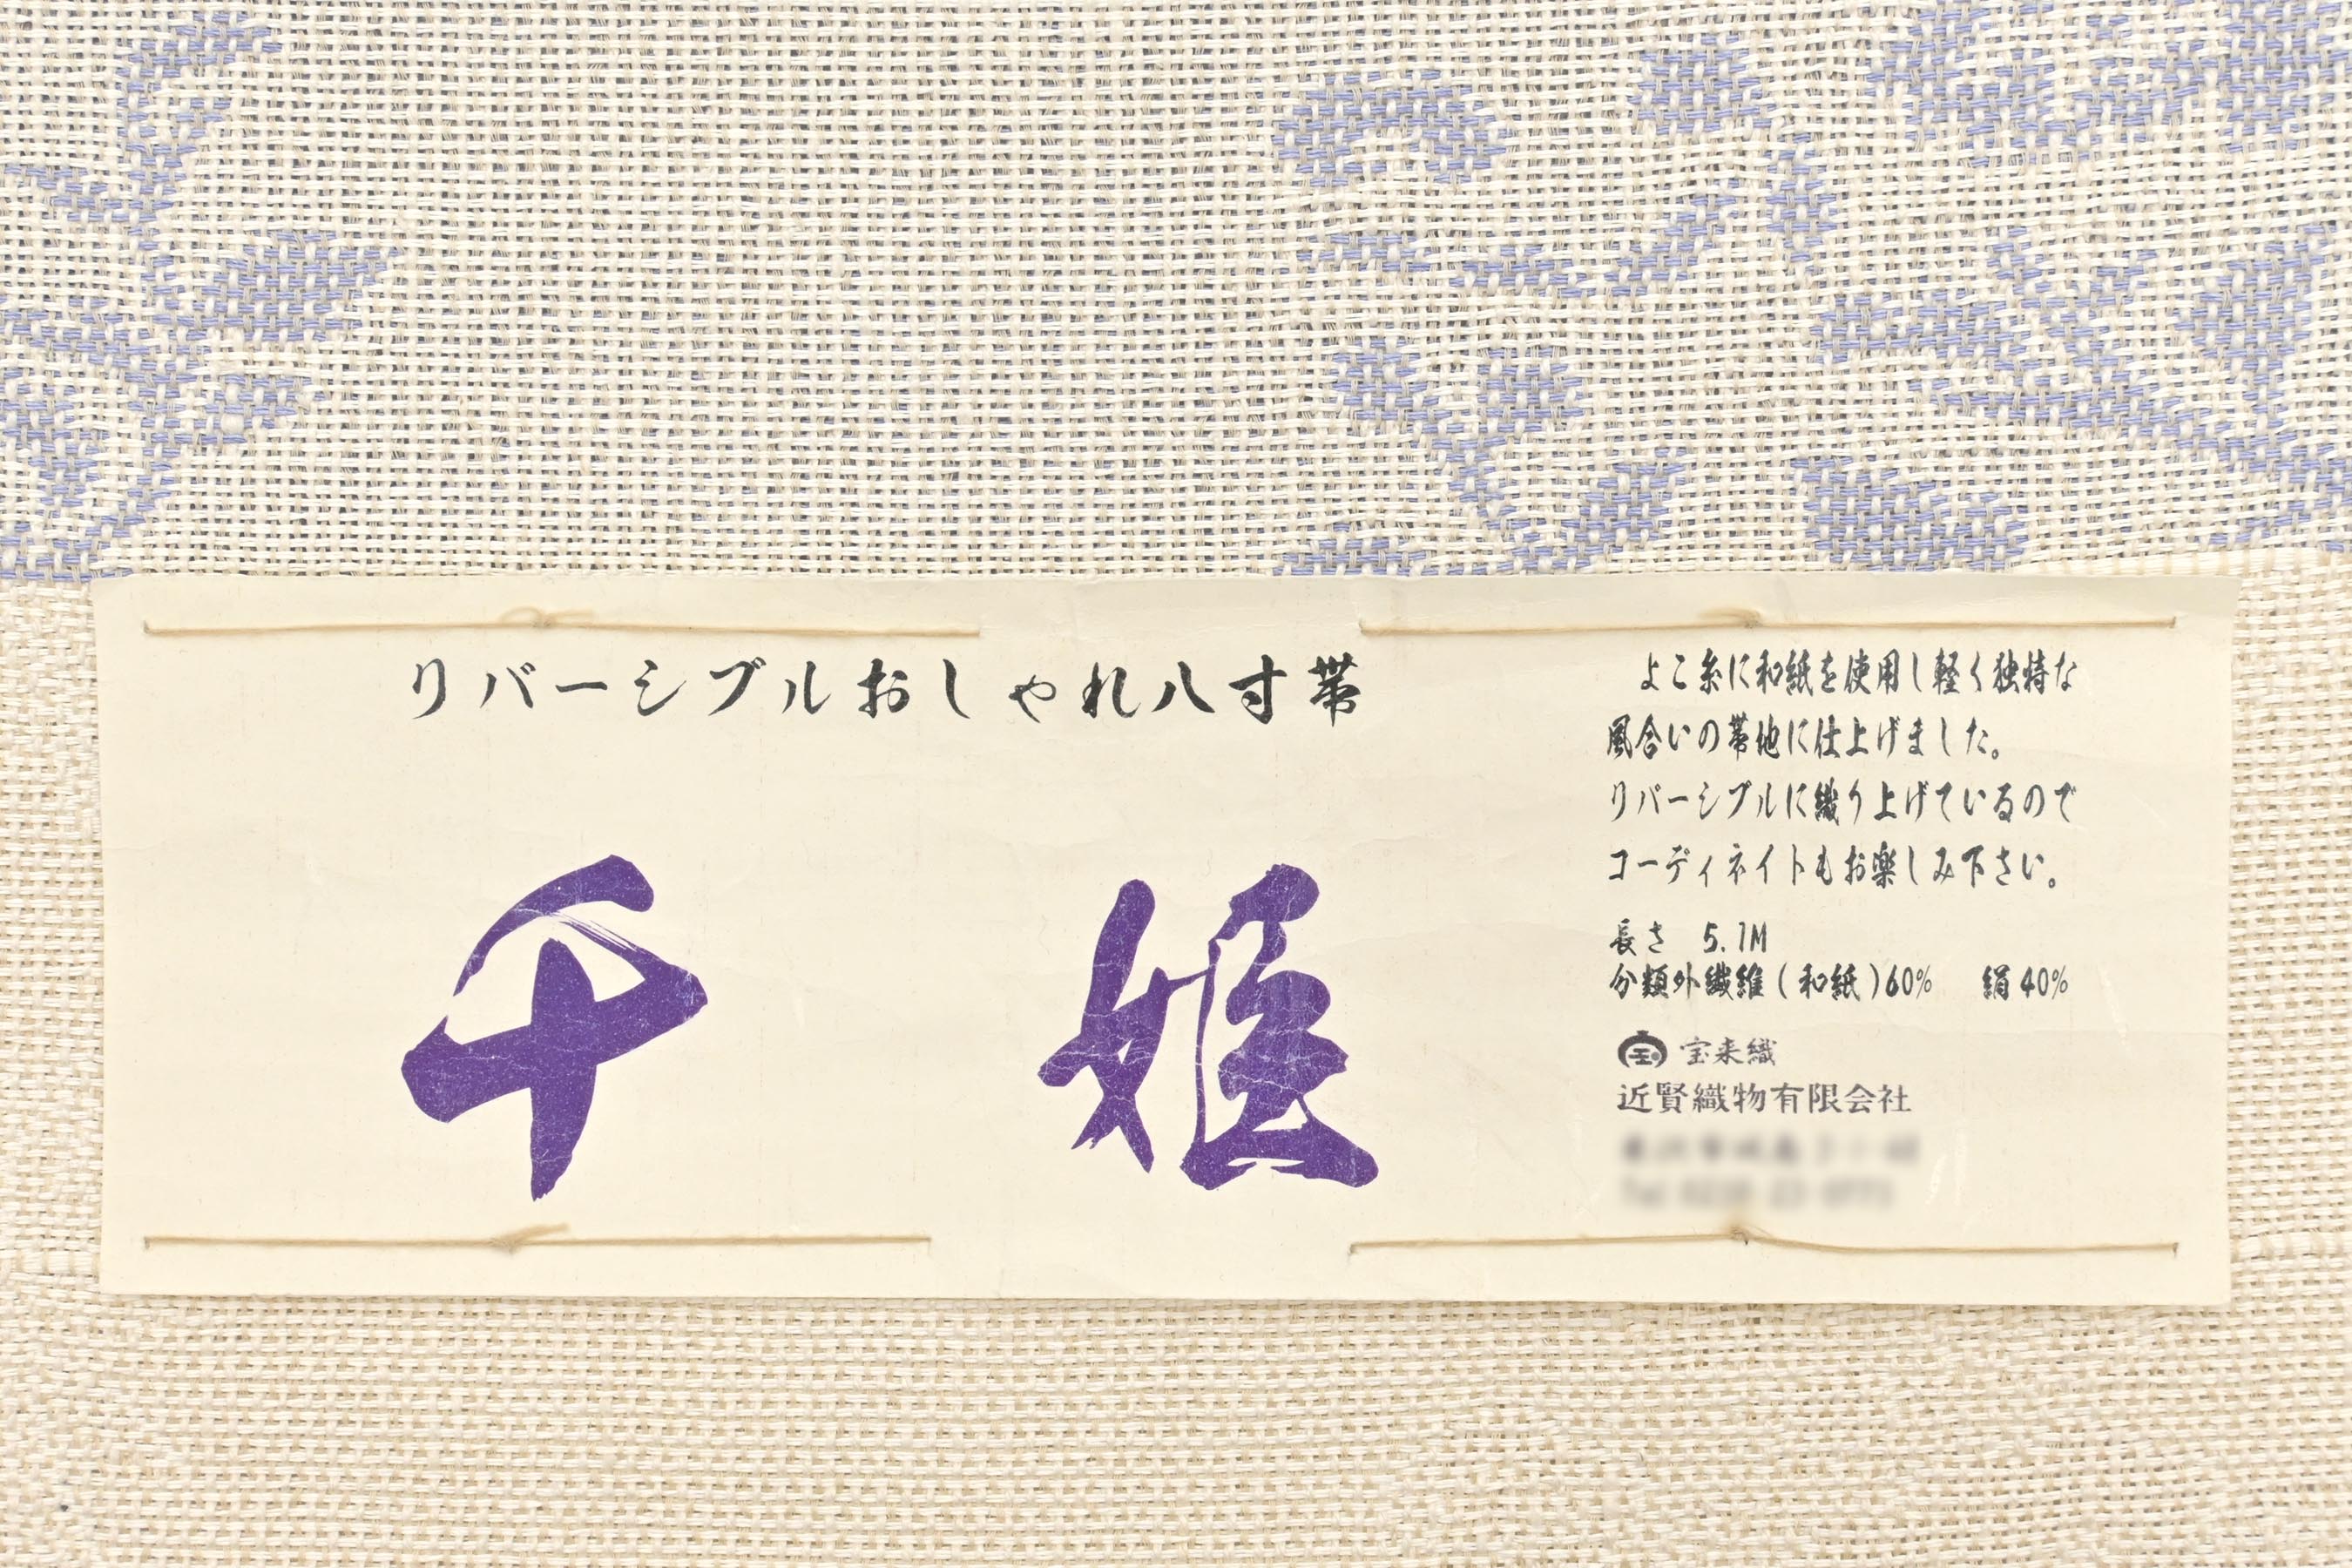 リバーシブルおしゃれ八寸帯
千姫
よこ糸に和紙を使用し軽く独特な
風合いの帯地に仕上げました。
リバーシブルに織り上げているので
コーディネイトもお楽しみ下さい。
長さ 5.1M
分類外繊維(和紙)60% 絹40%
宝来織
近賢織物有限会社